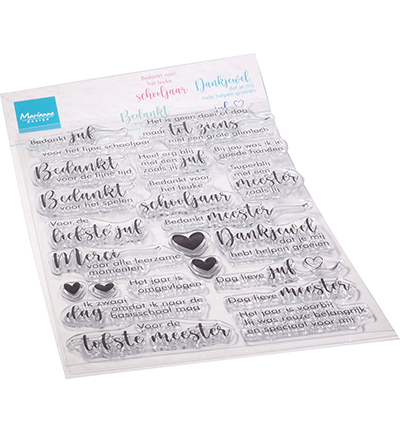 Marianne
DESIGN
Bedankt voor
het leuke
schooljaar
Dankjewel
dat je mij
hebt helpen groeien
Bedankt
juf
Bedankt juf
voor dit fijne schooljaar
Bedankt
voor de fijne tijd
Bedankt
voor het spelen
Voor de
liefste juf
Merci
voor alle leerzame
momenten
Het is geen doei of dag
maar tot ziens
met een grote glimlach
Had ik altijd
met een juf
zoals jij
Bedankt voor
het leuke
schooljaar
Bedankt meester
Bij jou was ik in
goede handen
Superblij
met een
meester
zoals jij
Dankjewel
dat je mij
hebt helpen groeien
Het jaar is
omgevlogen
Ik zwaai
dag omdat ik naar de
basisschool mag
Voor de
tofste meester
Dag lieve juf
Dag lieve meester
Het jaar is voorbij
jij was reuze belangrijk
en speciaal voor mij